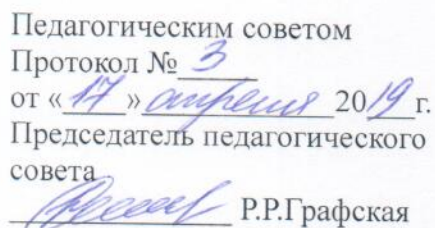 Педагогическим советом
Протокол № 3
от «17» апреля 2019 г.
Председатель педагогического
совета
Р.Р.Графская